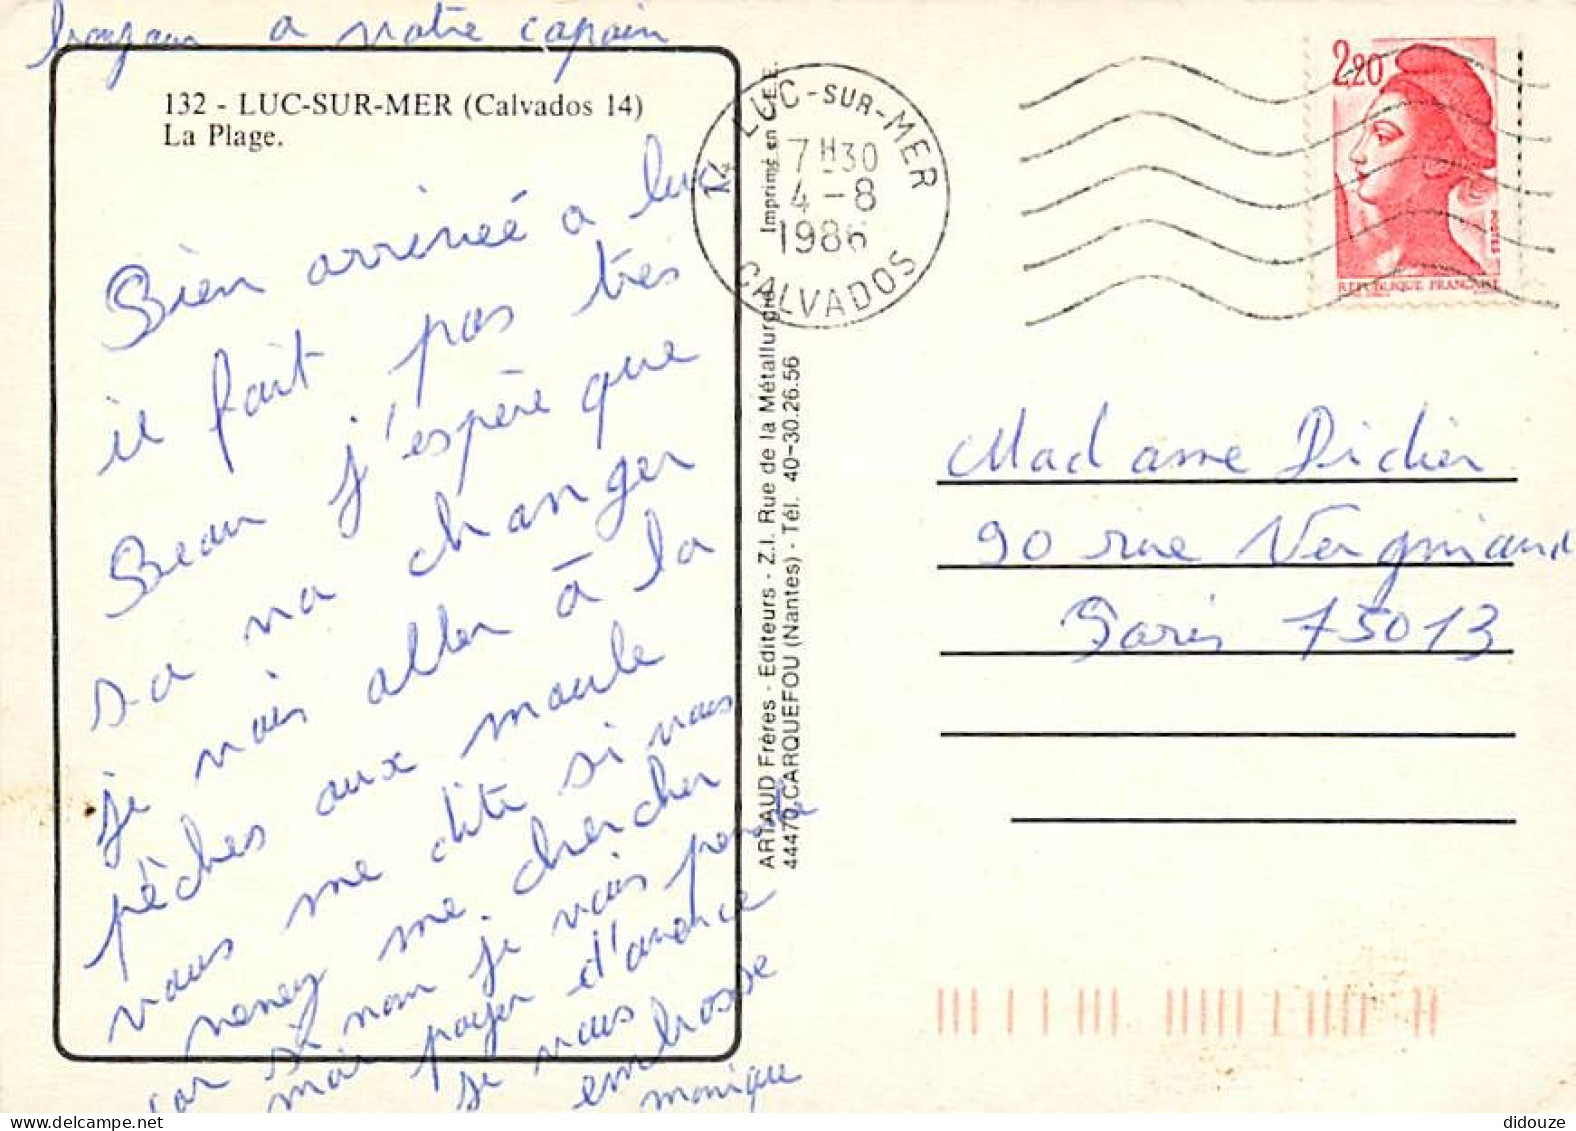 a notre copain
132 - LUC-SUR-MER (Calvados 14)
La Plage.
Bien arrivéé a luc
il fait pas très
Beau j'espère que
sa va changer
je vais aller à la
pêches aux moule
vous me dite si vous
venez me chercher
car si non je vais
moi payer d'avance
je vous embrasse
monique
Imprimé en C.E.E.
ARTAUD Frères - Editeurs - Z.I. Rue de la Métallurgie
44470 CARQUEFOU (Nantes) - Tél. 40-30.26.56
14 LUC-SUR-MER
7H30
4-8
1986
CALVADOS
2,20
POSTES
REPUBLIQUE FRANÇAISE
Madame Didier
90 rue Vergniaud
Paris 75013
didouze